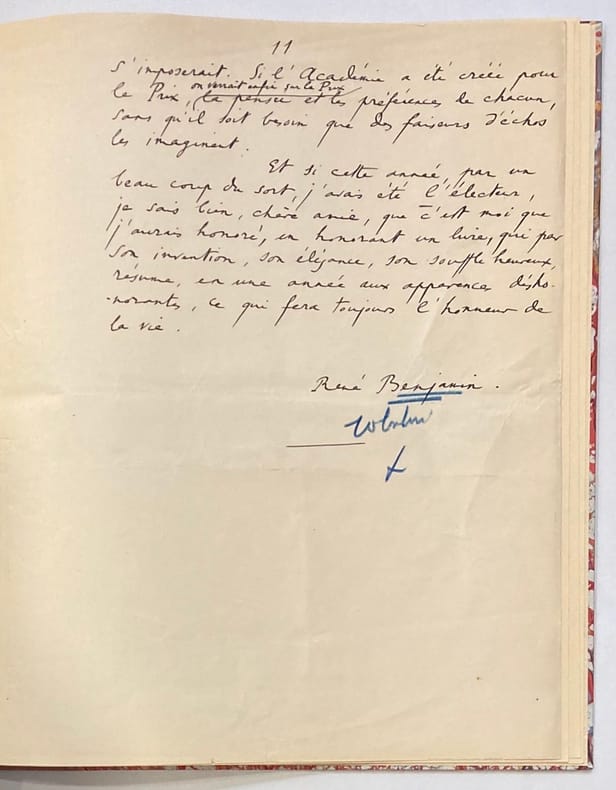 11
s'imposerait. Si l'Académie a été créée pour
on verrait enfin sur le Prix
le Prix, la pensée et les préférences de chacun,
sans qu'il soit besoin que des faiseurs d'échos
les imaginent.
Et si cette année, par un
beau coup du sort, j'avais été l'électeur,
je sais bien, chère amie, que c'est moi que
j'aurais honoré, en honorant un livre, qui par
son invention, son élégance, son souffle heureux,
résume, en une année aux apparences désho-
-norantes, ce qui fera toujours l'honneur de
la vie.
René Benjamin.